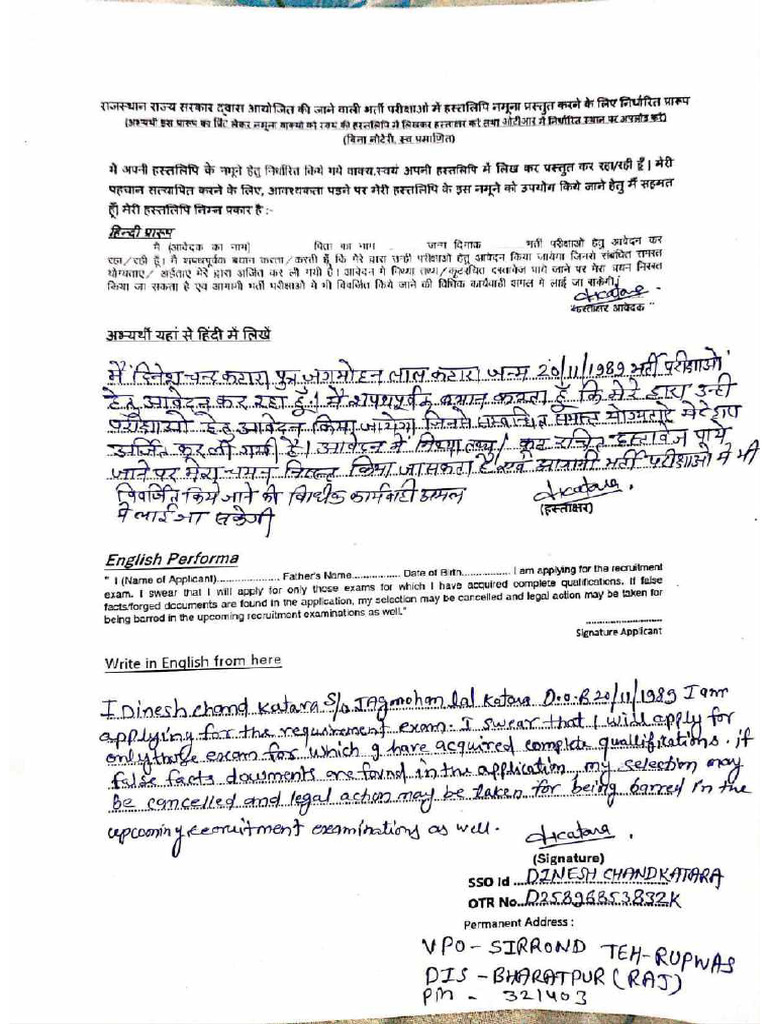 राजस्थान राज्य सरकार द्वारा आयोजित की जाने वाली भर्ती परीक्षाओ में हस्तलिपि नमूना प्रस्तुत करने के लिए निर्धारित प्रारूप
(अभ्यर्थी इस प्रारूप का प्रिंट लेकर नमूना वाक्यो को स्वयं की हस्तलिपि में लिखकर हस्ताक्षर करें तथा ओटीआर में निर्धारित स्थान पर अपलोड करें)
(बिना नोटेरी, स्व प्रमाणित)
मैं अपनी हस्तलिपि के नमूने हेतु निर्धारित किये गये वाक्य,स्वयं अपनी हस्तलिपि में लिख कर प्रस्तुत कर रहा/रही हूँ। मेरी
पहचान सत्यापित करने के लिए, आवश्यकता पड़ने पर मेरी हस्तलिपि के इस नमूने को उपयोग किये जाने हेतु मैं सहमत
हूँ। मेरी हस्तलिपि निम्न प्रकार है :-
हिन्दी प्रारूप
मैं (आवेदक का नाम) पिता का नाम जन्म दिनांक भर्ती परीक्षाओं हेतु आवेदन कर
रहा/रही हूँ। मैं शपथपूर्वक बयान करता/करती हूँ, कि मेरे द्वारा उन्ही परीक्षाओ हेतु आवेदन किया जायेगा जिनसे संबंधित समस्त
योग्यताएं/ अर्हताए मेरे द्वारा अर्जित कर ली गयी है। आवेदन मे मिथ्या तथ्य/कूटरचित दस्तावेज पाये जाने पर मेरा चयन निरस्त
किया जा सकता है एवं आगामी भर्ती परीक्षाओ मे भी विवर्जित किये जाने की विधिक कार्यवाही अमल मे लाई जा सकेगी।
dkcatara
हस्ताक्षर आवेदक
अभ्यर्थी यहां से हिंदी में लिखें
मैं दिनेश चन्द कटारा पुत्र जगमोहन लाल कटारा जन्म 20/11/1989 भर्ती परीक्षाओं
हेतु आवेदन कर रहा हूँ। मैं शपथपूर्वक बयान करता हूँ कि मेरे द्वारा उन्ही
परीक्षाओ हेतु आवेदन किया जायेगा जिनसे सम्बन्धित समस्त योग्यताए मेरे द्वारा
अर्जित कर ली गयी है। आवेदन में मिथ्या तथ्य/ कूट रचित दस्तावेज पाये
जाने पर मेरा चयन निरस्त किया जा सकता है एवं आगामी भर्ती परीक्षाओ मे भी
विवर्जित किये जाने की विधीक कार्यवाही अमल
मे लाई जा सकेगी
dkcatara.
(हस्ताक्षर)
English Performa
" I (Name of Applicant)................... Father's Name................ Date of Birth................ I am applying for the recruitment
exam. I swear that I will apply for only those exams for which I have acquired complete qualifications. If false
facts/forged documents are found in the application, my selection may be cancelled and legal action may be taken for
being barred in the upcoming recruitment examinations as well."
Signature Applicant
Write in English from here
I Dinesh chand Katara S/o Jagmohan lal Katara D.o.B 20/11/1989 I am
applying for the requirement exam. I swear that I will apply for
only those exam for which I have acquired complete quallifications. if
false facts dowments are found in the application, my selection may
be cancelled and legal action may be taken for being barred in the
upcoming recruitment examinations as well.
dkcatara.
(Signature)
SSO Id ...DINESH CHANDKATARA
OTR No...D25896853832K
Permanent Address :
VPO- SIRROND TEH-RUPWAS
DIS -BHARATPUR (RAJ)
PIN - 321403